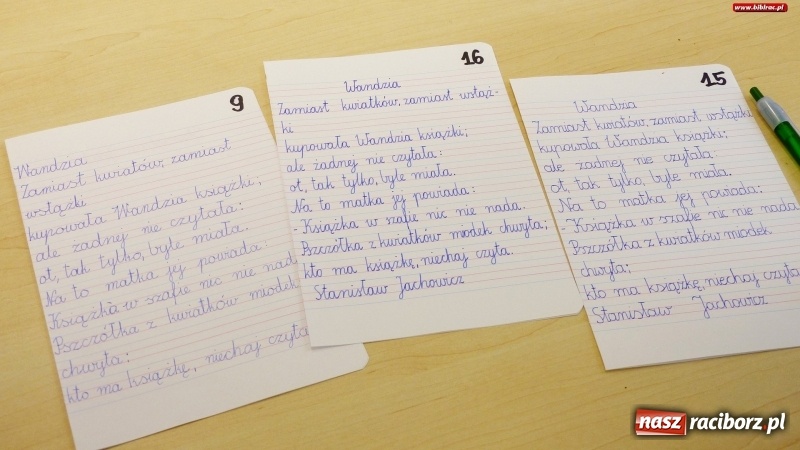 www.bibrac.pl
9
Wandzia
Zamiast kwiatów, zamiast
wstążki
kupowała Wandzia książki;
ale żadnej nie czytała:
ot, tak tylko, byle miała.
Na to matka jej powiada:
Książka w szafie nic nie nad
Pszczółka z kwiatków miodek
chwyta;
kto ma książkę, niechaj czyta
16
Wandzia
Zamiast kwiatków, zamiast wstąż-
ki
kupowała Wandzia książki;
ale żadnej nie czytała:
ot, tak tylko, byle miała.
Na to matka jej powiada:
- Książka w szafie nic nie nada.
Pszczółka z kwiatków miodek chwyta;
kto ma książkę, niechaj czyta.
Stanisław Jachowicz
15
Wandzia
Zamiast kwiatów, zamiast wstążki
kupowała Wandzia książki;
ale żadnej nie czytała:
ot, tak tylko, byle miała.
Na to matka jej powiada:
- Książka w szafie nic nie nada
Pszczółka z kwiatków miodek
chwyta;
kto ma książkę, niechaj czyta
Stanisław Jachowicz
nasz raciborz.pl